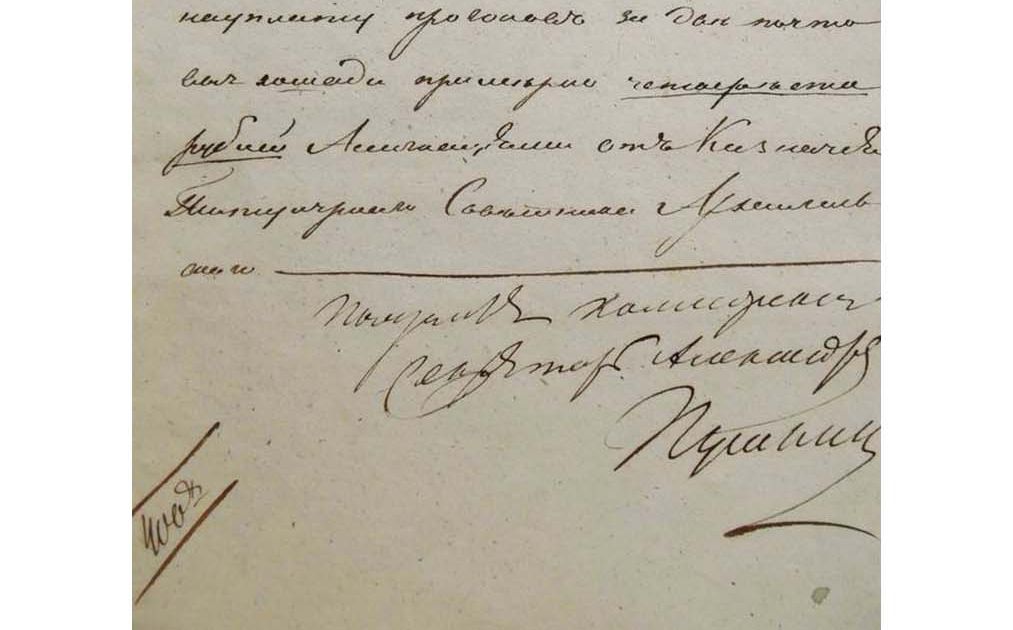 на уплату прогоновъ за две почто
выя лошади примерно четыреста
рублей Ассигнациями отъ Казначея
Титулярнаго Советника Архипов
скаго
Получилъ Коллежский
Секретарь Александръ
Пушкинъ
400 р